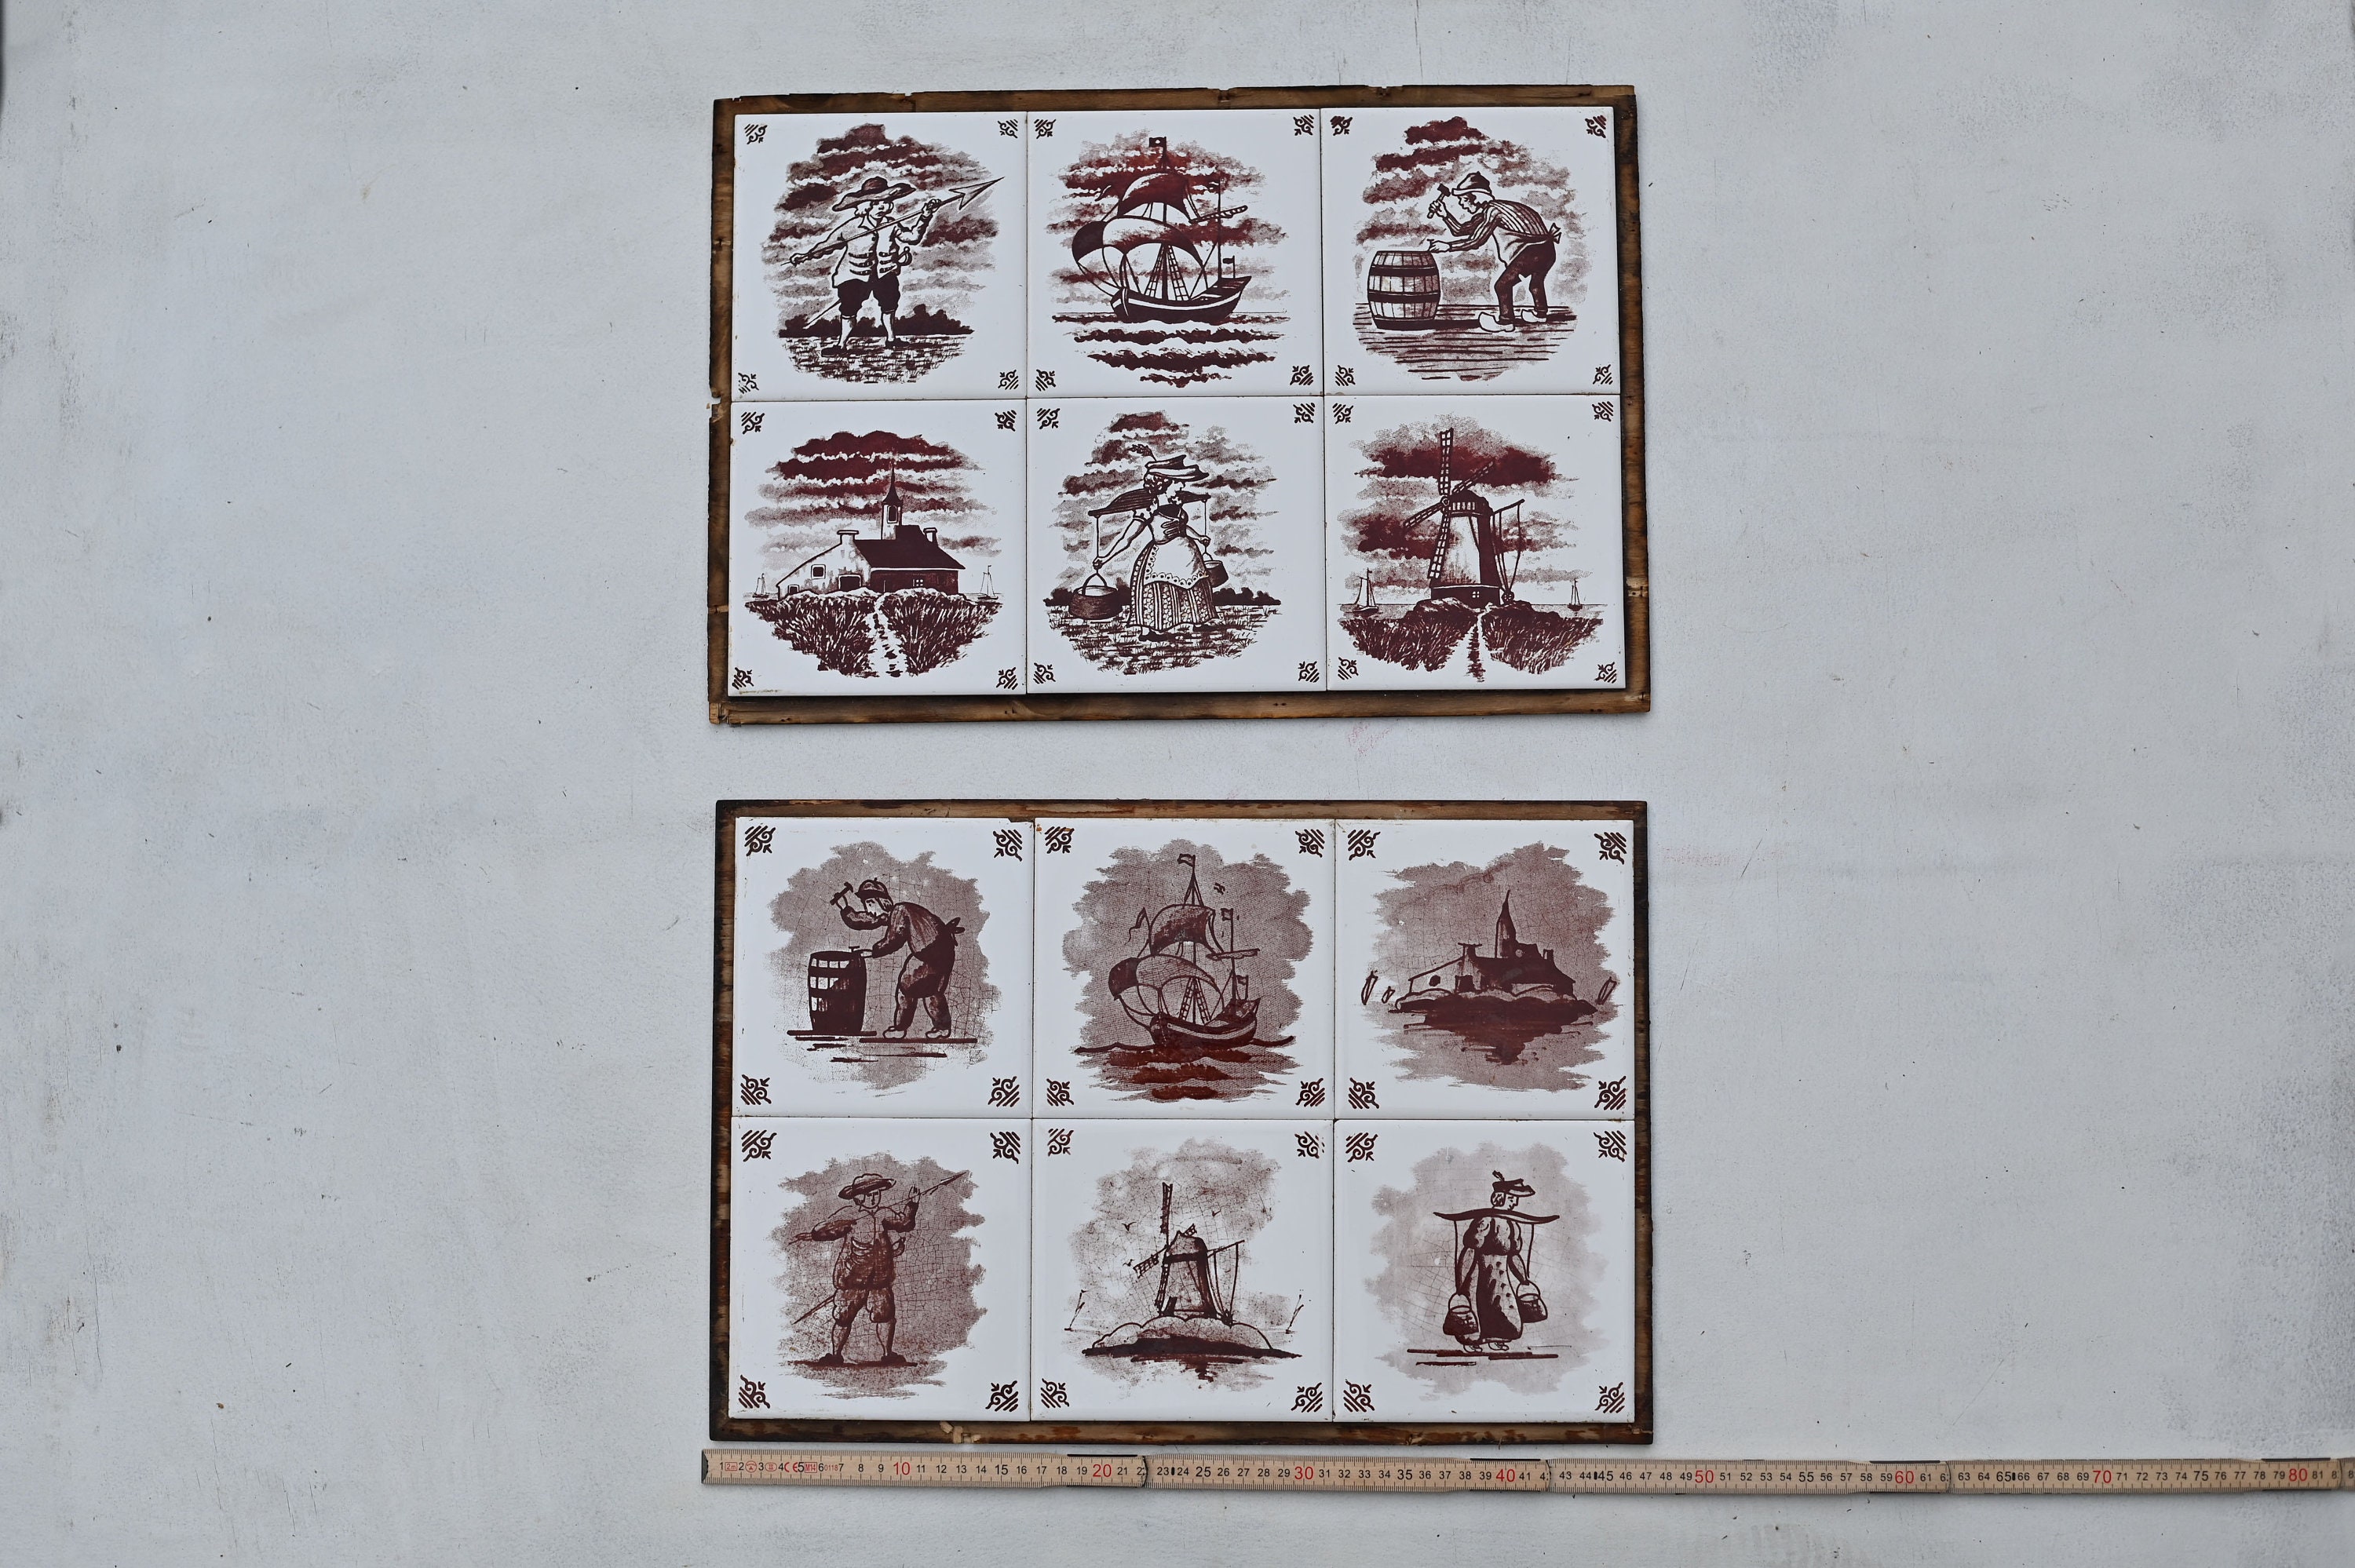 1 2m 2 3 4 CE 5 M14 6 0118 7 8 9 10 11 12 13 14 15 16 17 18 19 20 21 23 24 25 26 27 28 29 30 31 32 33 34 35 36 37 38 39 40 41 43 44 45 46 47 48 49 50 51 52 53 54 55 56 57 58 59 60 61 63 64 65 66 67 68 69 70 71 72 73 74 75 76 77 78 79 80 81